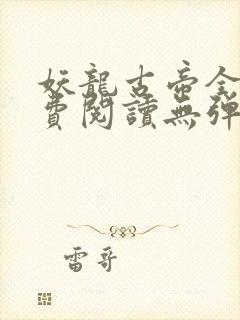 妖龍古帝全
費閱讀無彈
雷哥